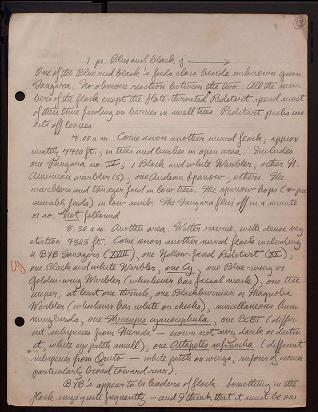 1 pr. Blue and Black
One of the Blue and Black's feeds close beside unknown green
Tangara. No obvious reaction between the two. All the mem-
bers of the flock except the Slate-throated Redstart spend most
of their time feeding on berries in small trees. Redstart gleans in-
sects off leaves.
7:00 a.m. Come across another mixed flock, approx
imately 7400 ft., in trees and bushes in open area. Includes
one Tangara no. IV, 1 Black and white Warbler, other N.
American warbler(s), one Andean Sparrow, others. The
warblers and tanager feed in low trees. The sparrow hops
in low scrub. The Tangara flies off in a minute
or so. Not followed
8:30 a.m. Another area. Wetter ravine, with dense veg
etation 7525 ft. Come across another mixed flock including
2 BYB Tanagers (XVII), one Yellow-faced Redstart (XX),
one Black and white Warbler, one, one Blue-wing or
Golden-wing Warbler (whichever has facial mask), one tree
creeper, at least one thrush, one Blackburnian or Magnolia
Warbler (whichever has white on cheeks), miscellaneous hum
mingbirds, one, one BCBT (differ
ent subspecies from Merida — crown not very dark or distinct
white eye patch small), one Atlapetes rufinucha (different
subspecies from Quito — white patch on wings, rufous of crown
particularly broad toward rear).
BYB's appear to be leaders of flock. Something in the
flock sings quite frequently — and I think that it must be one